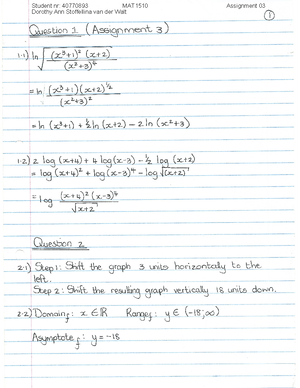 Student nr: 40770893 MAT1510 Assignment 03
Dorothy Ann Stoffelina van der Walt
1
Question 1 (Assignment 3)
1·1) ln √((x³+1)² (x+2) / (x²+3)⁴)
= ln (x³+1)(x+2)^½ / (x²+3)²
= ln (x³+1) + ½ ln (x+2) − 2 ln (x²+3)
1·2) 2 log (x+4) + 4 log(x−3) − ½ log (x+2)
= log (x+4)² + log (x−3)⁴ − log √(x+2)
= log (x+4)² (x−3)⁴ / √(x+2)
Question 2
2·1) Step 1: Shift the graph 3 units horizontally to the
left.
Step 2: Shift the resulting graph vertically 18 units down.
2·2) Domain_f : x ∈ ℝ Range_f : y ∈ (−18;∞)
Asymptote_f : y = −18